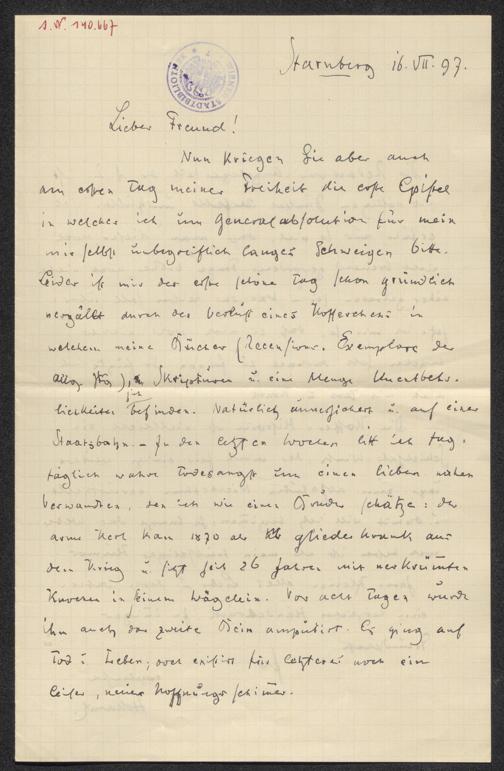 I.N. 140.667
WIENER STADTBIBLIOTHEK
Starnberg 16. VII. 97.
Lieber Freund!
Nun kriegen Sie aber auch
am ersten Tag meiner Freiheit die erste Epistel
in welcher ich um Generalabsolution für mein
mir selbst unbegreiflich langes Schweigen bitte.
Leider ist mir der erste schöne Tag schon gründlich
vergällt durch den Verlust eines Kofferchens in
welchem meine Bücher (Recensions-Exemplare der
Allg. Ztg), Skripturen u. eine Menge Unentbehr-
lichkeiten sich befinden. Natürlich unversichert u. auf einer
Staatsbahn. – In den letzten Wochen litt ich tag-
täglich wahre Todesangst um einen lieben nahen
Verwandten, den ich wie einen Bruder schätze: der
arme Kerl kam 1870 als gliederkrank aus
dem Krieg u. sitzt seit 26 Jahren mit verkrümmten
Knochen in seinem Wägelein. Vor acht Tagen wurde
ihm auch das zweite Bein amputirt. Es ging auf
Tod u. Leben; doch existirt für letzteres noch ein
leiser, neuer Hoffnungsschimmer.